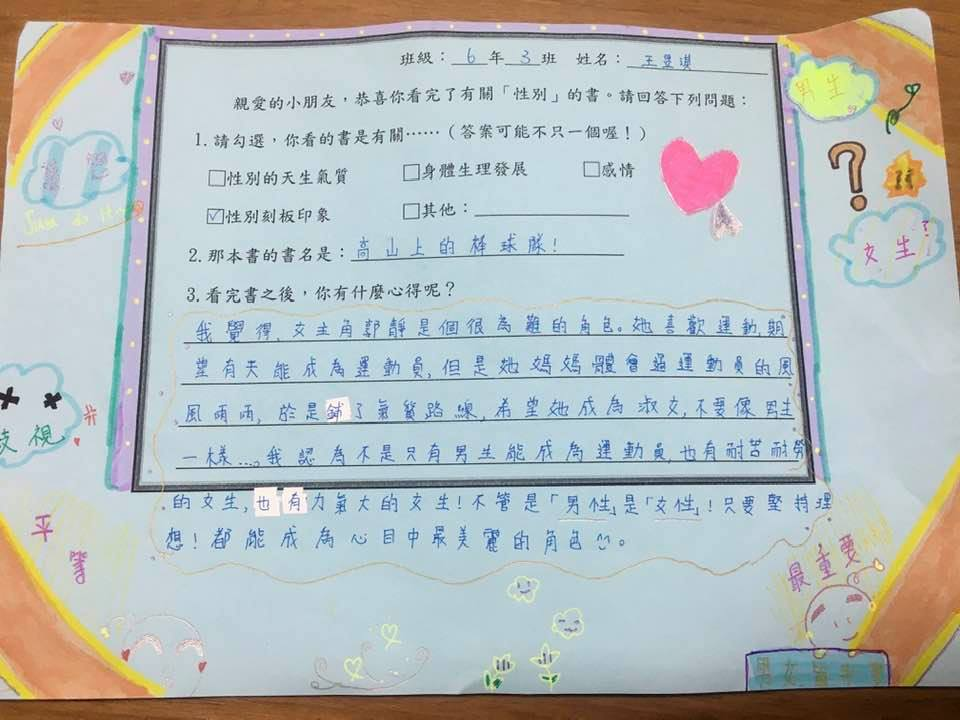 班級：6年3班 姓名：王昱琪
親愛的小朋友，恭喜你看完了有關「性別」的書。請回答下列問題：
1.請勾選，你看的書是有關……（答案可能不只一個喔！）
□性別的天生氣質 □身體生理發展 □感情
☑性別刻板印象 □其他：
2.那本書的書名是：高山上的棒球隊！
3.看完書之後，你有什麼心得呢？
我覺得，女主角郭靜是個很為難的角色。她喜歡運動，期
望有天能成為運動員，但是她媽媽體會過運動員的風
風雨雨，於是鋪了氣質路線，希望她成為淑女，不要像男生
一樣...，我認為不是只有男生能成為運動員，也有耐苦耐勞
的女生，也有力氣大的女生！不管是「男性」是「女性」！只要堅持理
想！都能成為心目中最美麗的角色。
男生
？
!!
女生
歧視
平等
最重要
男女